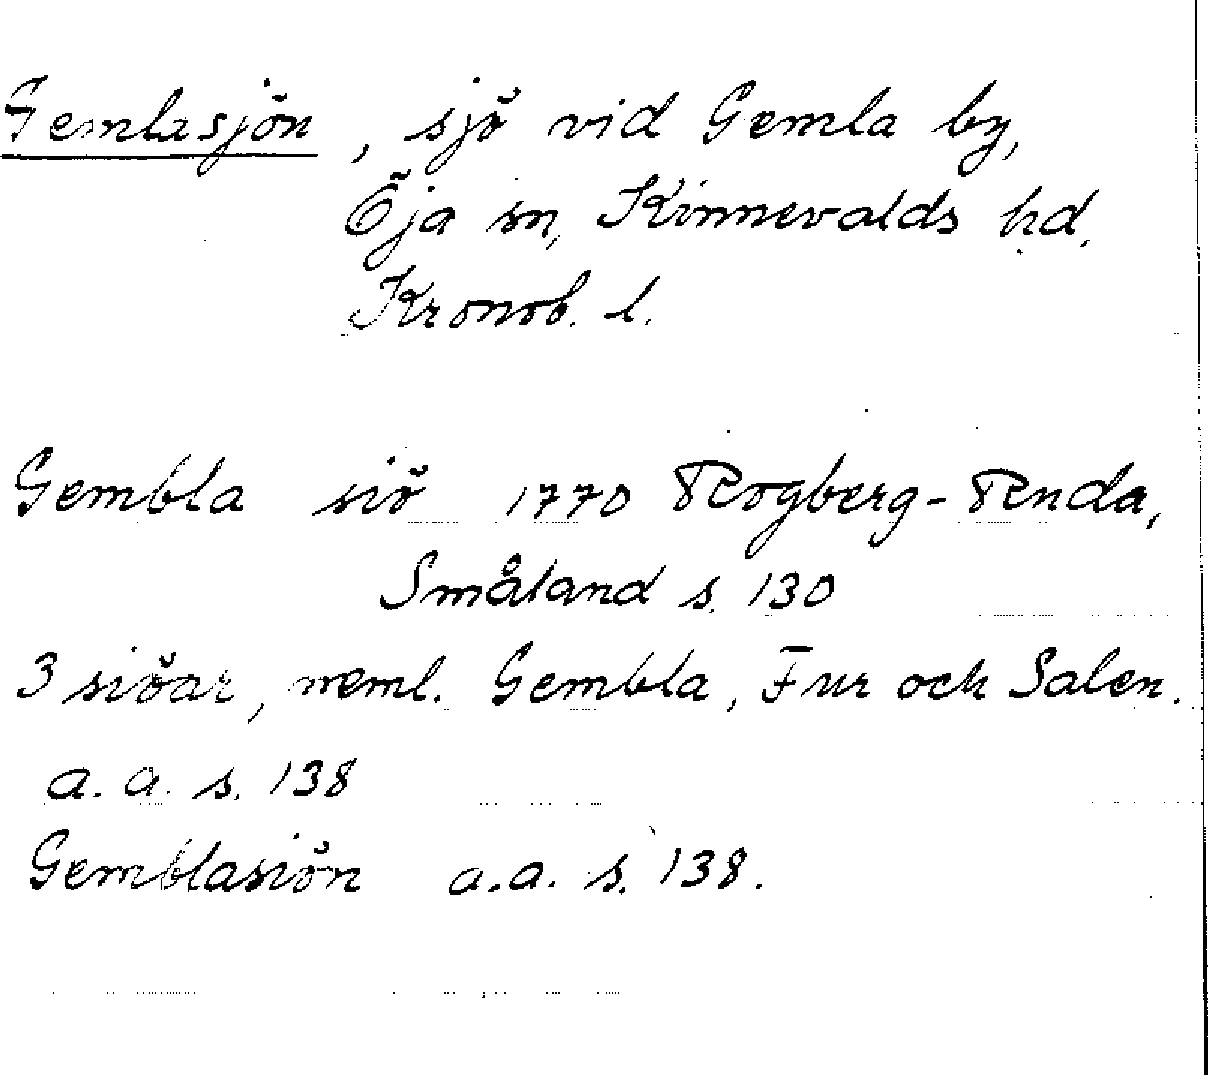 Gemlasjön, sjö vid Gemla by,
Öja sn, Kinnevalds hd,
Kronob. l.
Gembla siö 1770 Rogberg-Ruda,
Småland s. 130
3 siöar, neml. Gembla, Fur och Salen.
a. a. s. 138
Gemblasiön a.a. s. 138.